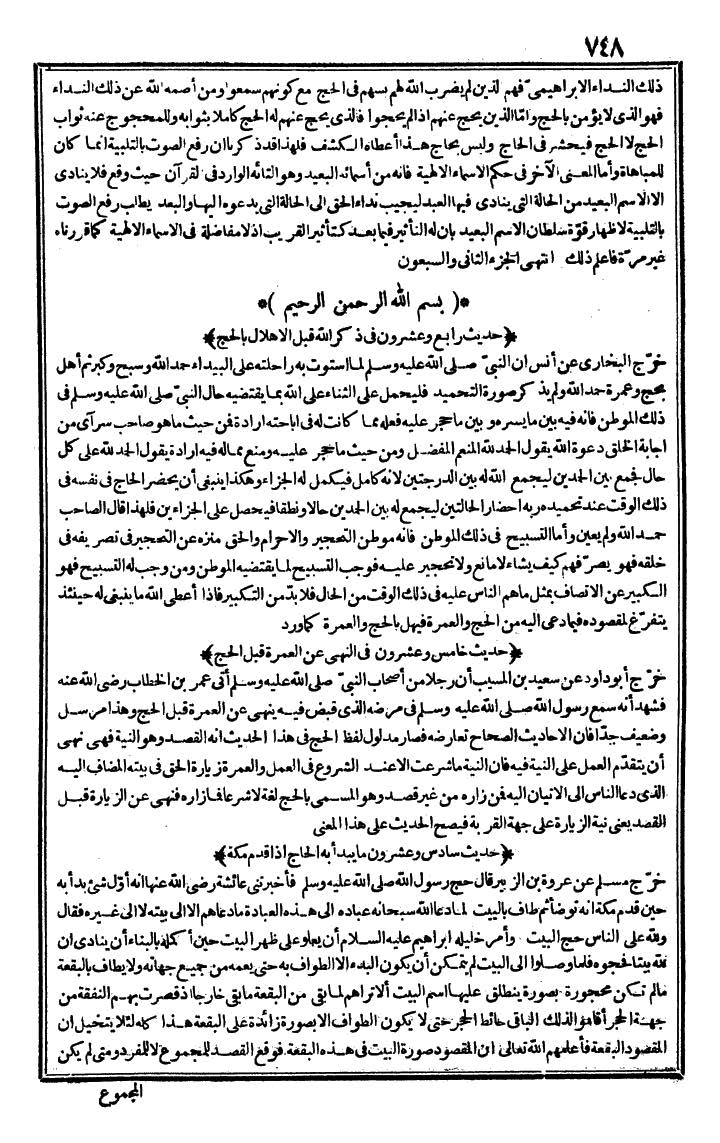 ٧٤٨
ذلك النداء الابراهيمى فهم الذين لم يضرب الله لهم بسهم فى الحج مع كونهم سمعوا ومن أصمه الله عن ذلك النداء
فهو الذى لا يؤمن بالحج وامّا الذين يحج عنهم اذا لم يحجوا فالذى يحج عنهم له الحج كاملا بثوابه وللمحجوج عنه ثواب
الحج لا الحج فيحشر فى الحاج وليس بحاج هذا أعطاء الكشف فلهذا قد ذكرنا ان رفع الصوت بالتلبية انما كان
للمباهاة وأما المعنى الآخر فى حكم الاسماء الالهية فانه من أسمائه البعيد وهو التائه الوارد فى القرآن حيث وقع فلا ينادى
الا الاسم البعيد من الحالة التى ينادى فيها العبد ليجيب نداء الحق الى الحالة التى يدعوه اليها والبعد يطلب رفع الصوت
بالتلبية لاظهار قوّة سلطان الاسم البعيد بان له التأثير فيما بعد كتأثير القريب اذ لا مفاضلة فى الاسماء الالهية كما قررناه
غير مرّة فاعلم ذلك انتهى الجزء الثانى والسبعون
*( بسم الله الرحمن الرحيم )*
﴿حديث رابع وعشرون فى ذكر الله قبل الاهلال بالحج﴾
خرّج البخارى عن أنس ان النبىّ صلى الله عليه وسلم لما استوت به راحلته على البيداء حمد الله وسبح وكبر ثم أهل
بحج وعمرة حمد الله ولم يذكر صورة التحميد فليحمل على الثناء على الله بما يقتضيه حال النبىّ صلى الله عليه وسلم فى
ذلك الموطن فانه فيه بين ما يسره وبين ما حجر عليه فعله مما كانت له فى اباحته ارادة فمن حيث ما هو صاحب سرّ أى من
اجابة الخلق دعوة الله يقول الحمد لله المنعم المفضل ومن حيث ما حجر عليه ومنع مما له فيه ارادة يقول الحمد لله على كل
حال فجمع بين الحمدين ليجمع الله له بين الدرجتين لانه كامل فيكمل له الجزاء وهكذا ينبغى أن يحضر الحاج فى نفسه فى
ذلك الوقت عند تحميده ربه احضار الحالتين ليجمع له بين الحمدين حالا ونطقا فيحصل على الجزاءين فلهذا قال الصاحب
حمد الله ولم يعين وأما التسبيح فى ذلك الموطن فانه موطن التحجير والاحرام والحق منزه عن التحجير فى تصريفه فى
خلقه فهو يصرّفهم كيف يشاء لا مانع ولا تحجير عليه فوجب التسبيح لما يقتضيه الموطن ومن وجب له التسبيح فهو
الكبير عن الاتصاف بمثل ما هم الناس عليه فى ذلك الوقت من الحال فلا بدّ من التكبير فاذا أعطى الله ما ينبغى له حينئذ
يتفرّغ لمقصوده فيما دعى اليه من الحج والعمرة فيهل بالحج والعمرة كما ورد
﴿حديث خامس وعشرون فى النهى عن العمرة قبل الحج﴾
خرّج أبو داود عن سعيد بن المسيب أن رجلا من أصحاب النبىّ صلى الله عليه وسلم أتى عمر بن الخطاب رضى الله عنه
فشهد أنه سمع رسول الله صلى الله عليه وسلم فى مرضه الذى قبض فيه ينهى عن العمرة قبل الحج وهذا مرسل
وضعيف جدّا فان الاحاديث الصحاح تعارضه فصار مدلول لفظ الحج فى هذا الحديث انه القصد وهو النية فهى نهى
أن يتقدّم العمل على النية فيه فان النية ما شرعت الا عند الشروع فى العمل والعمرة زيارة الحق فى بيته المضاف اليه
الذى دعا الناس الى الاتيان اليه فمن زاره من غير قصد وهو المسمى بالحج لغة لا شرعا فما زاره فنهى عن الزيارة قبل
القصد يعنى نية الزيارة على جهة القربة فيصح الحديث على هذا المعنى
﴿حديث سادس وعشرون ما يبدأ به الحاج اذا قدم مكة﴾
خرّج مسلم عن عروة بن الزبير قال حج رسول الله صلى الله عليه وسلم فأخبرتنى عائشة رضى الله عنها انه أوّل شئ بدأ به
حين قدم مكة انه توضأ ثم طاف بالبيت لما دعا الله سبحانه عباده الى هذه العبادة ما دعاهم الا الى بيته لا الى غيره فقال
ولله على الناس حج البيت وأمر خليله ابراهيم عليه السلام أن يعلو على ظهر البيت حين أكمله بالبناء أن ينادى ان
لله بيتا فحجوه فلما وصلوا الى البيت لم يتمكن أن يكون البدء الا الطواف به حتى يعمه من جميع جهاته ولا يطاف بالبقعة
ما لم تكن محجورة بصورة ينطلق عليها اسم البيت ألا تراهم لما بقى من البقعة ما بقى خارجا اذ قصرت بهم النفقة من
جهة الحجر أقاموا لذلك الباقى حائط الحجر حتى لا يكون الطواف الا بصورة زائدة على البقعة هذا كله لئلا يتخيل ان
المقصود البقعة فأعلمهم الله تعالى ان المقصود صورة البيت فى هذه البقعة فوقع القصد للمجموع لا للمفرد ومتى لم يكن
المجموع